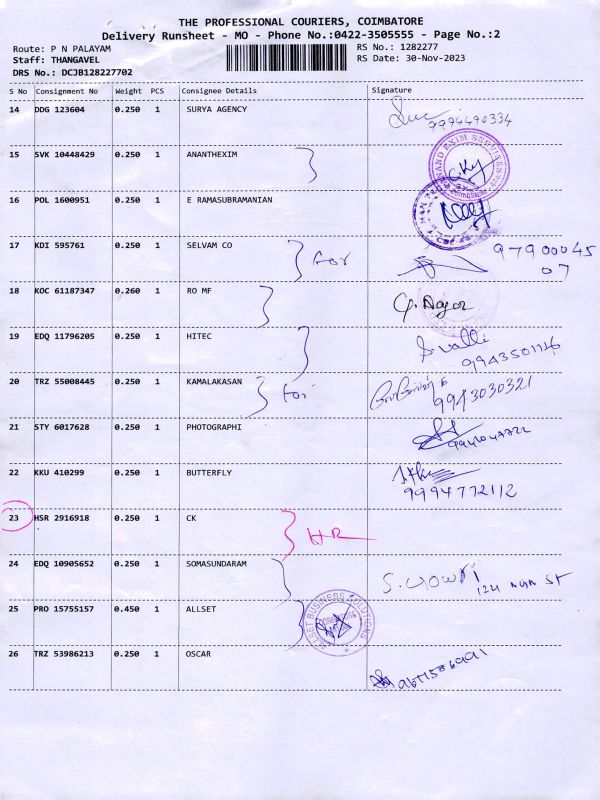 THE PROFESSIONAL COURIERS, COIMBATORE
Delivery Runsheet - MO - Phone No.:0422-3505555 - Page No.:2
Route: P N PALAYAM
RS No.: 1282277
Staff: THANGAVEL
RS Date: 30-Nov-2023
DRS No.: DCJB128227702
S No Consignment No Weight PCS Consignee Details Signature
14 DDG 123604 0.250 1 SURYA AGENCY
7994490334
15 SVK 10448429 0.250 1 ANANTHEXIM
16 POL 1600951 0.250 1 E RAMASUBRAMANIAN
17 KDI 595761 0.250 1 SELVAM CO For 97900045
07
18 KOC 61187347 0.260 1 RO MF
19 EDQ 11796205 0.250 1 HITEC S. valli
20 TRZ 55008445 0.250 1 KAMALAKASAN for 9943030321
21 STY 6017628 0.250 1 PHOTOGRAPHI
22 KKU 410299 0.250 1 BUTTERFLY
9994772112
23 HSR 2916918 0.250 1 CK HR
24 EDQ 10905652 0.250 1 SOMASUNDARAM
25 PRO 15755157 0.450 1 ALLSET ALLSET BUSINESS SOLUTIONS
26 TRZ 53986213 0.250 1 OSCAR